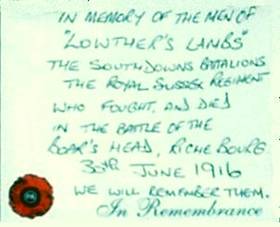 IN MEMORY OF THE MEN OF
"LOWTHER'S LAMBS"
THE SOUTHDOWNS BATALIONS
THE ROYAL SUSSEX REGIMENT
WHO FOUGHT, AND DIED
IN THE BATTLE OF THE
BOAR'S HEAD, RICHE BOURG
30TH JUNE 1916
WE WILL REMEMBER THEM.
In Remembrance